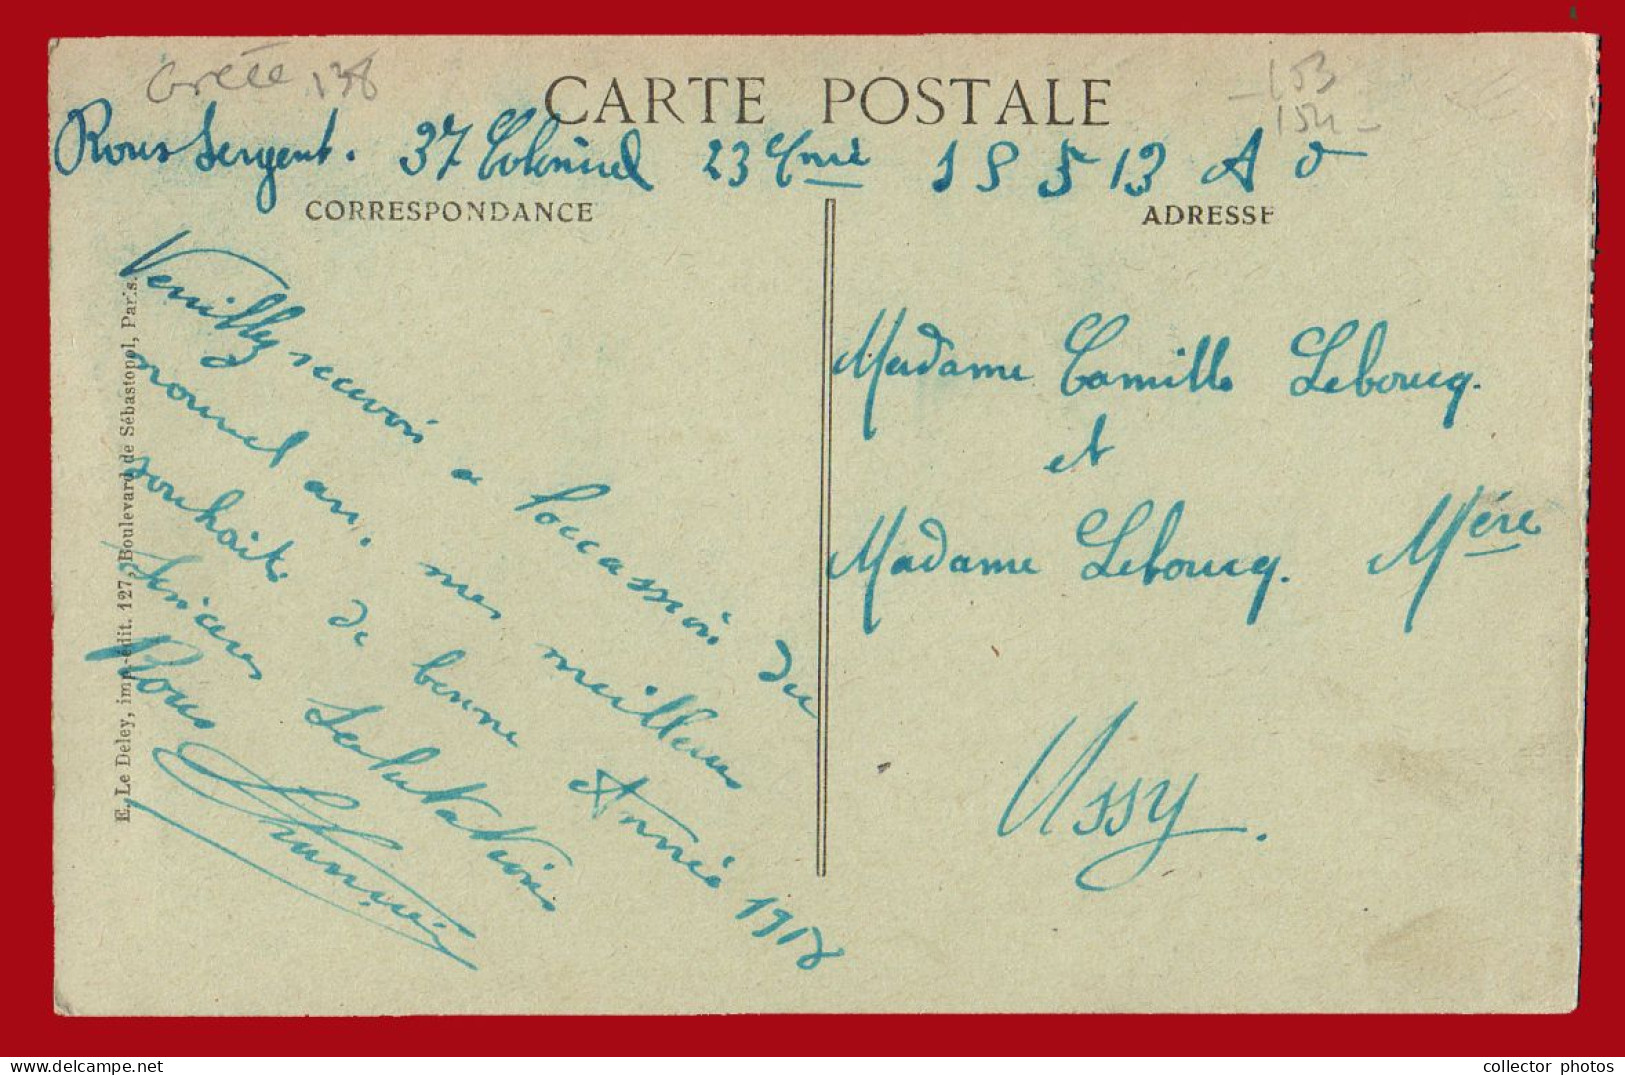 Grèce 138
CARTE POSTALE
153
154
Rous Sergent. 37 Colonial 23 Cmie 1 S 5 13 A O
CORRESPONDANCE
ADRESSE
Veuillez recevoir a l'occassion du
nouvel an. mes meilleurs
souhaits de bonne Année 1918
Sincères Salutations
Rous
E. Le Deley, imp.-édit. 127, Boulevard de Sébastopol, Paris.
Madame Camille Leboucq.
et
Madame Leboucq. Mère
Ussy.
collector photos